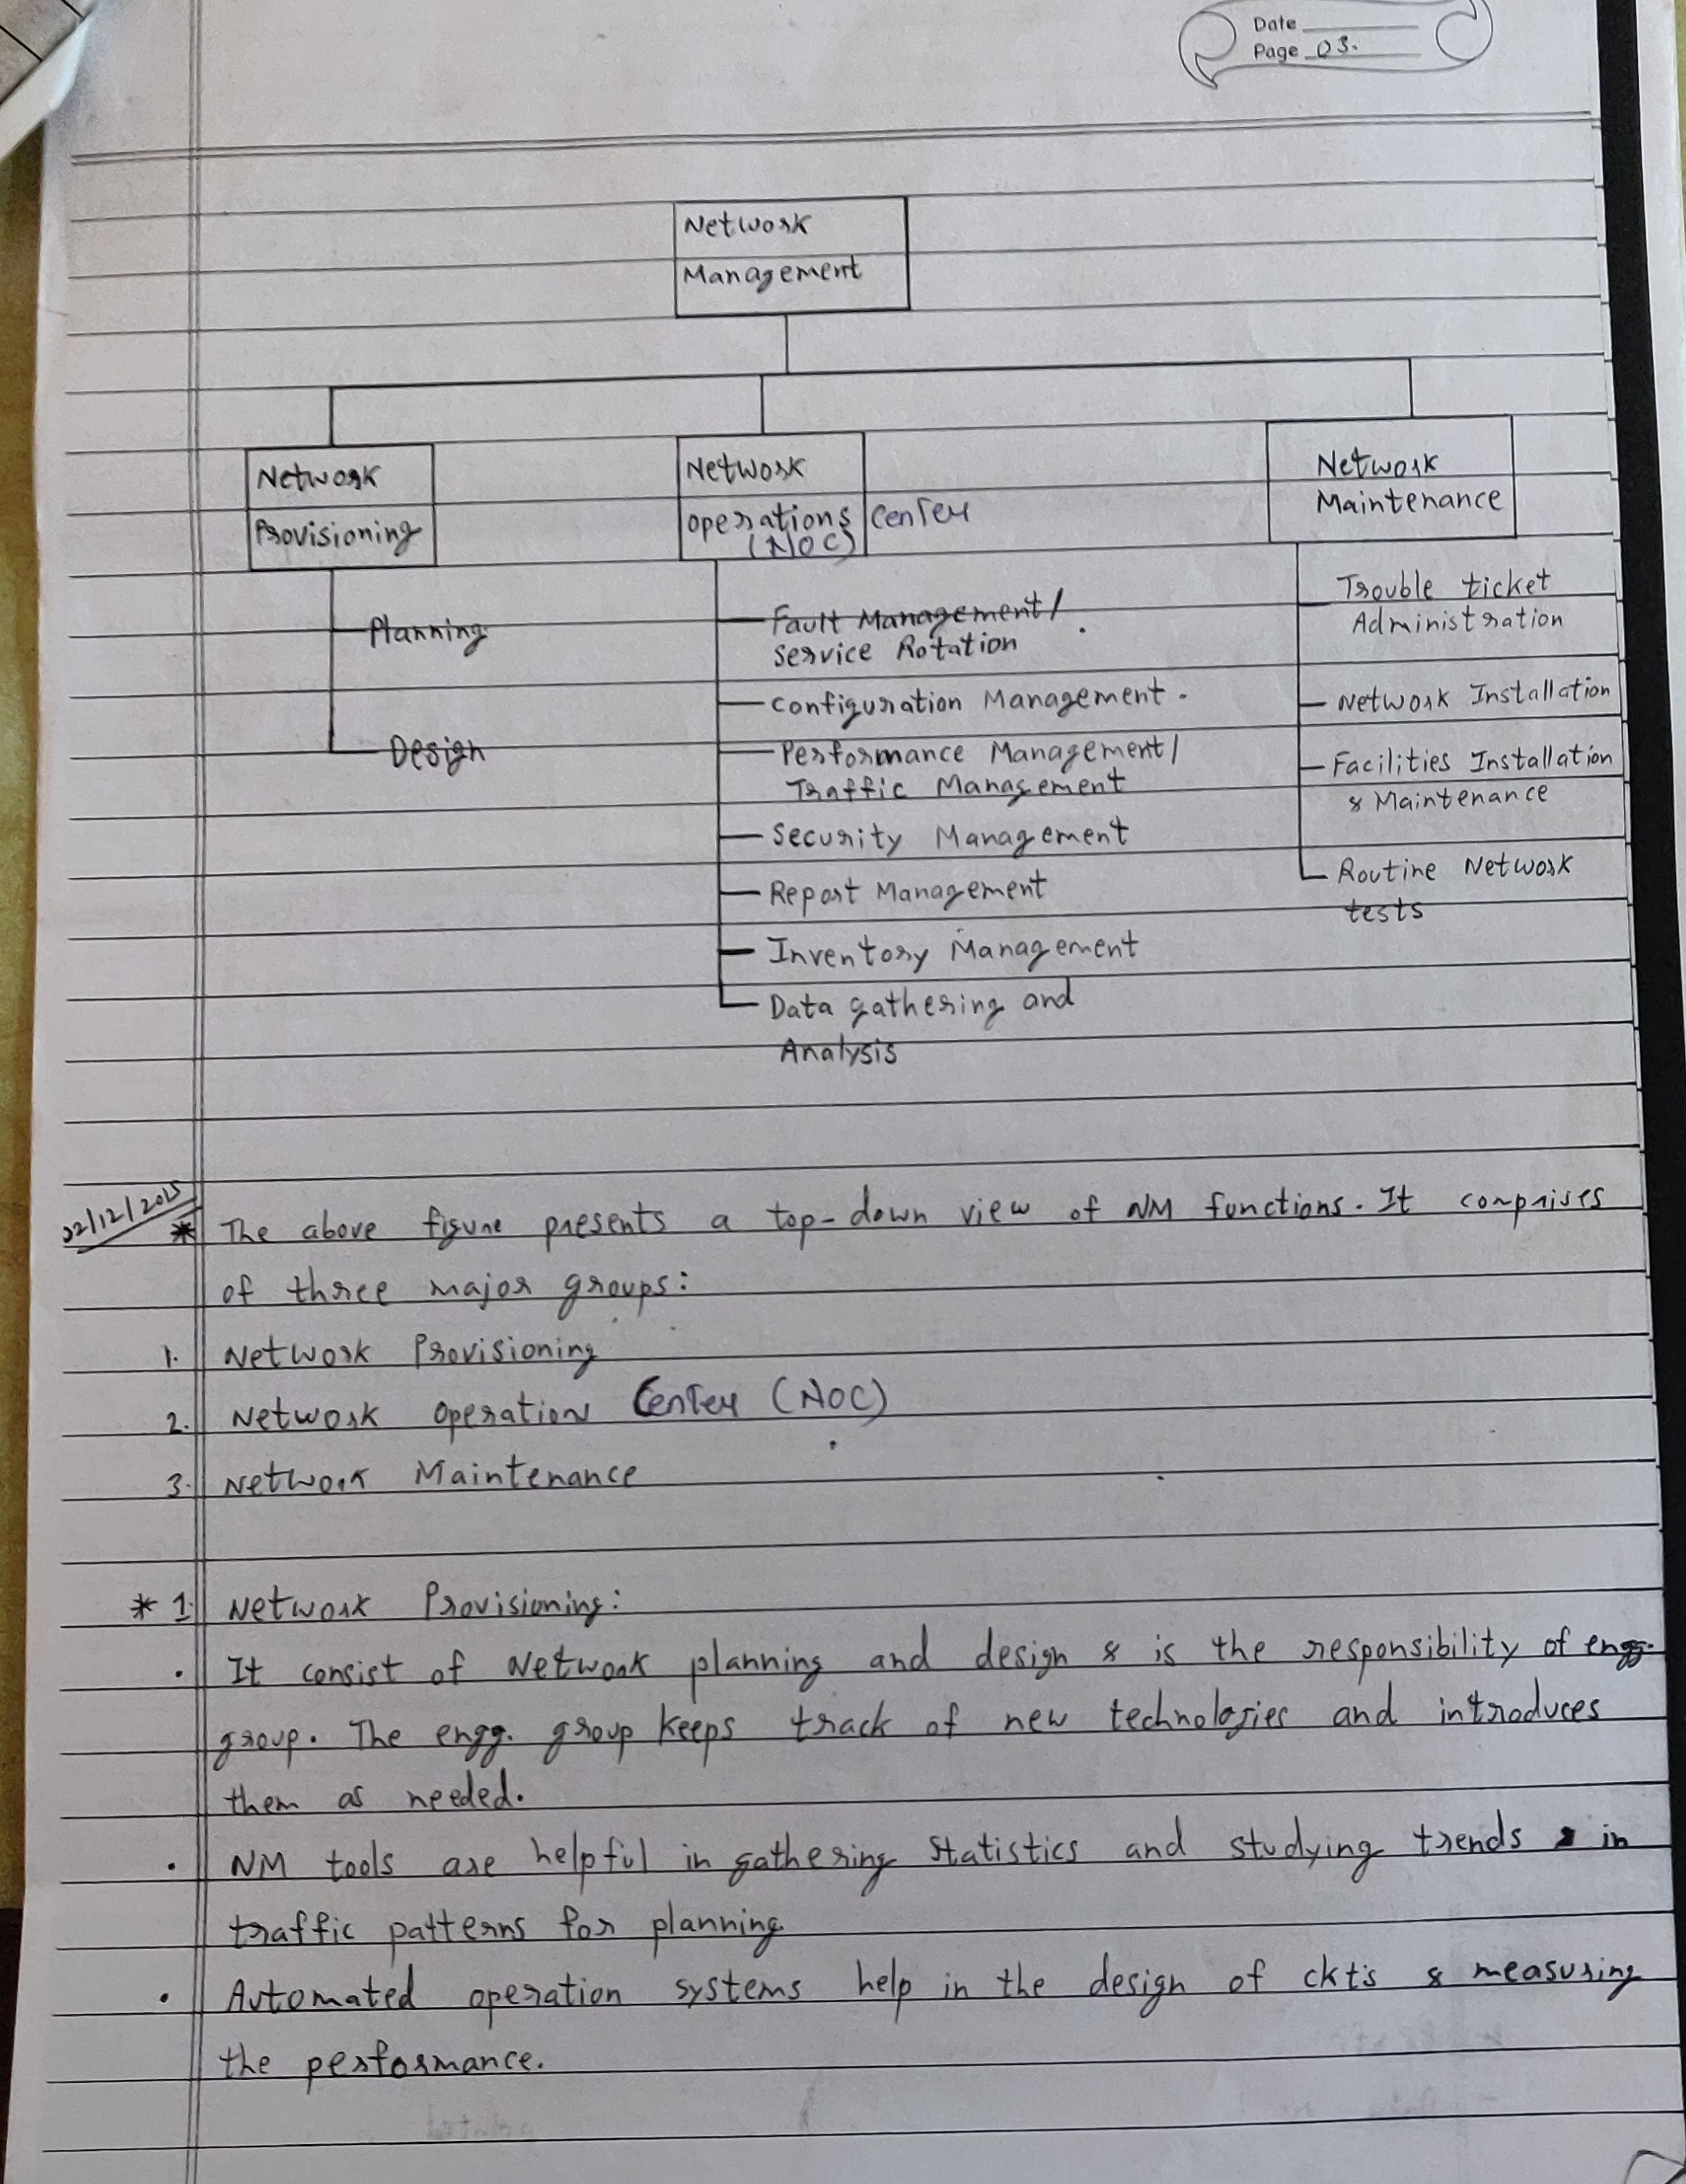 Date
Page 03.
Network
Management
Network
Provisioning
Network
operations Center
(NOC)
Network
Maintenance
Planning
Design
Fault Management/
Service Rotation
Configuration Management.
Performance Management/
Traffic Management
Security Management
Report Management
Inventory Management
Data gathering and
Analysis
Trouble ticket
Administration
Network Installation
Facilities Installation
& Maintenance
Routine Network
tests
22/12/2025
* The above figure presents a top-down view of NM functions. It comprises
of three major groups:
1. Network Provisioning
2. Network Operation Center (NOC)
3. Network Maintenance
* 1. Network Provisioning:
• It consist of Network planning and design & is the responsibility of engg.
group. The engg. group keeps track of new technologies and introduces
them as needed.
• NM tools are helpful in gathering Statistics and studying trends in
traffic patterns for planning
• Automated operation systems help in the design of ckt's & measuring
the performance.